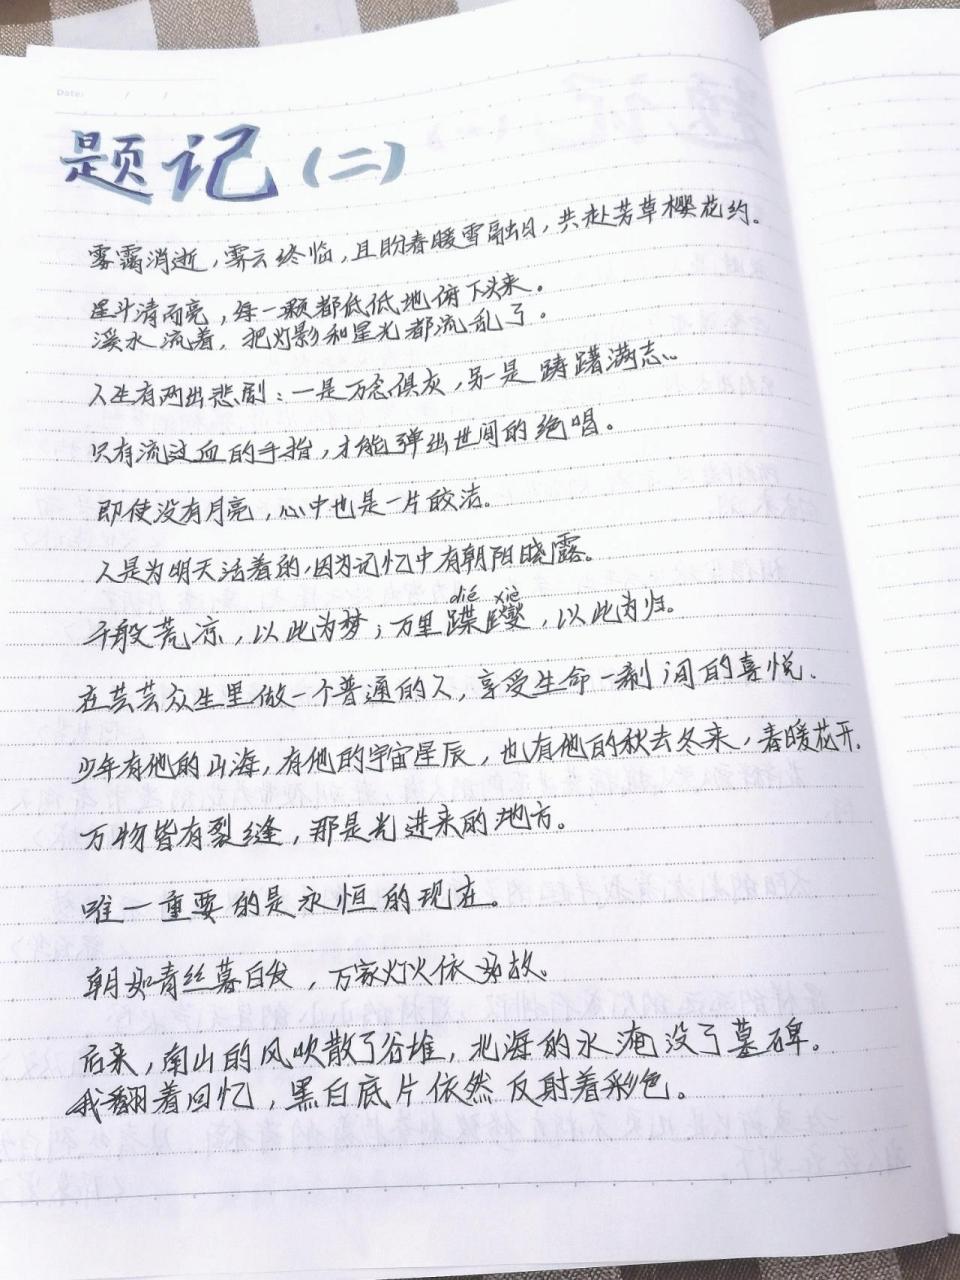 Date: / /
题记(二)
雾霭消逝，霁云终临，且盼春暖雪融日，共赴芳草樱花约。
星斗清而亮，每一颗都低低地俯下头来。
溪水流着，把灯影和星光都流乱了。
人生有两出悲剧：一是万念俱灰，另一是踌躇满志。
只有流过血的手指，才能弹出世间的绝唱。
即使没有月亮，心中也是一片皎洁。
人是为明天活着的，因为记忆中有朝阳晓露。
dié xiè
千般荒凉，以此为梦；万里蹀躞，以此为归。
在芸芸众生里做一个普通的人，享受生命一刹间的喜悦。
少年有他的山海，有他的宇宙星辰，也有他的秋去冬来，春暖花开.
万物皆有裂缝，那是光进来的地方。
唯一重要的是永恒的现在。
朝如青丝暮白发，万家灯火依如故。
后来，南山的风吹散了谷堆，北海的水淹没了墓碑。
我翻着回忆，黑白底片依然反射着彩色。